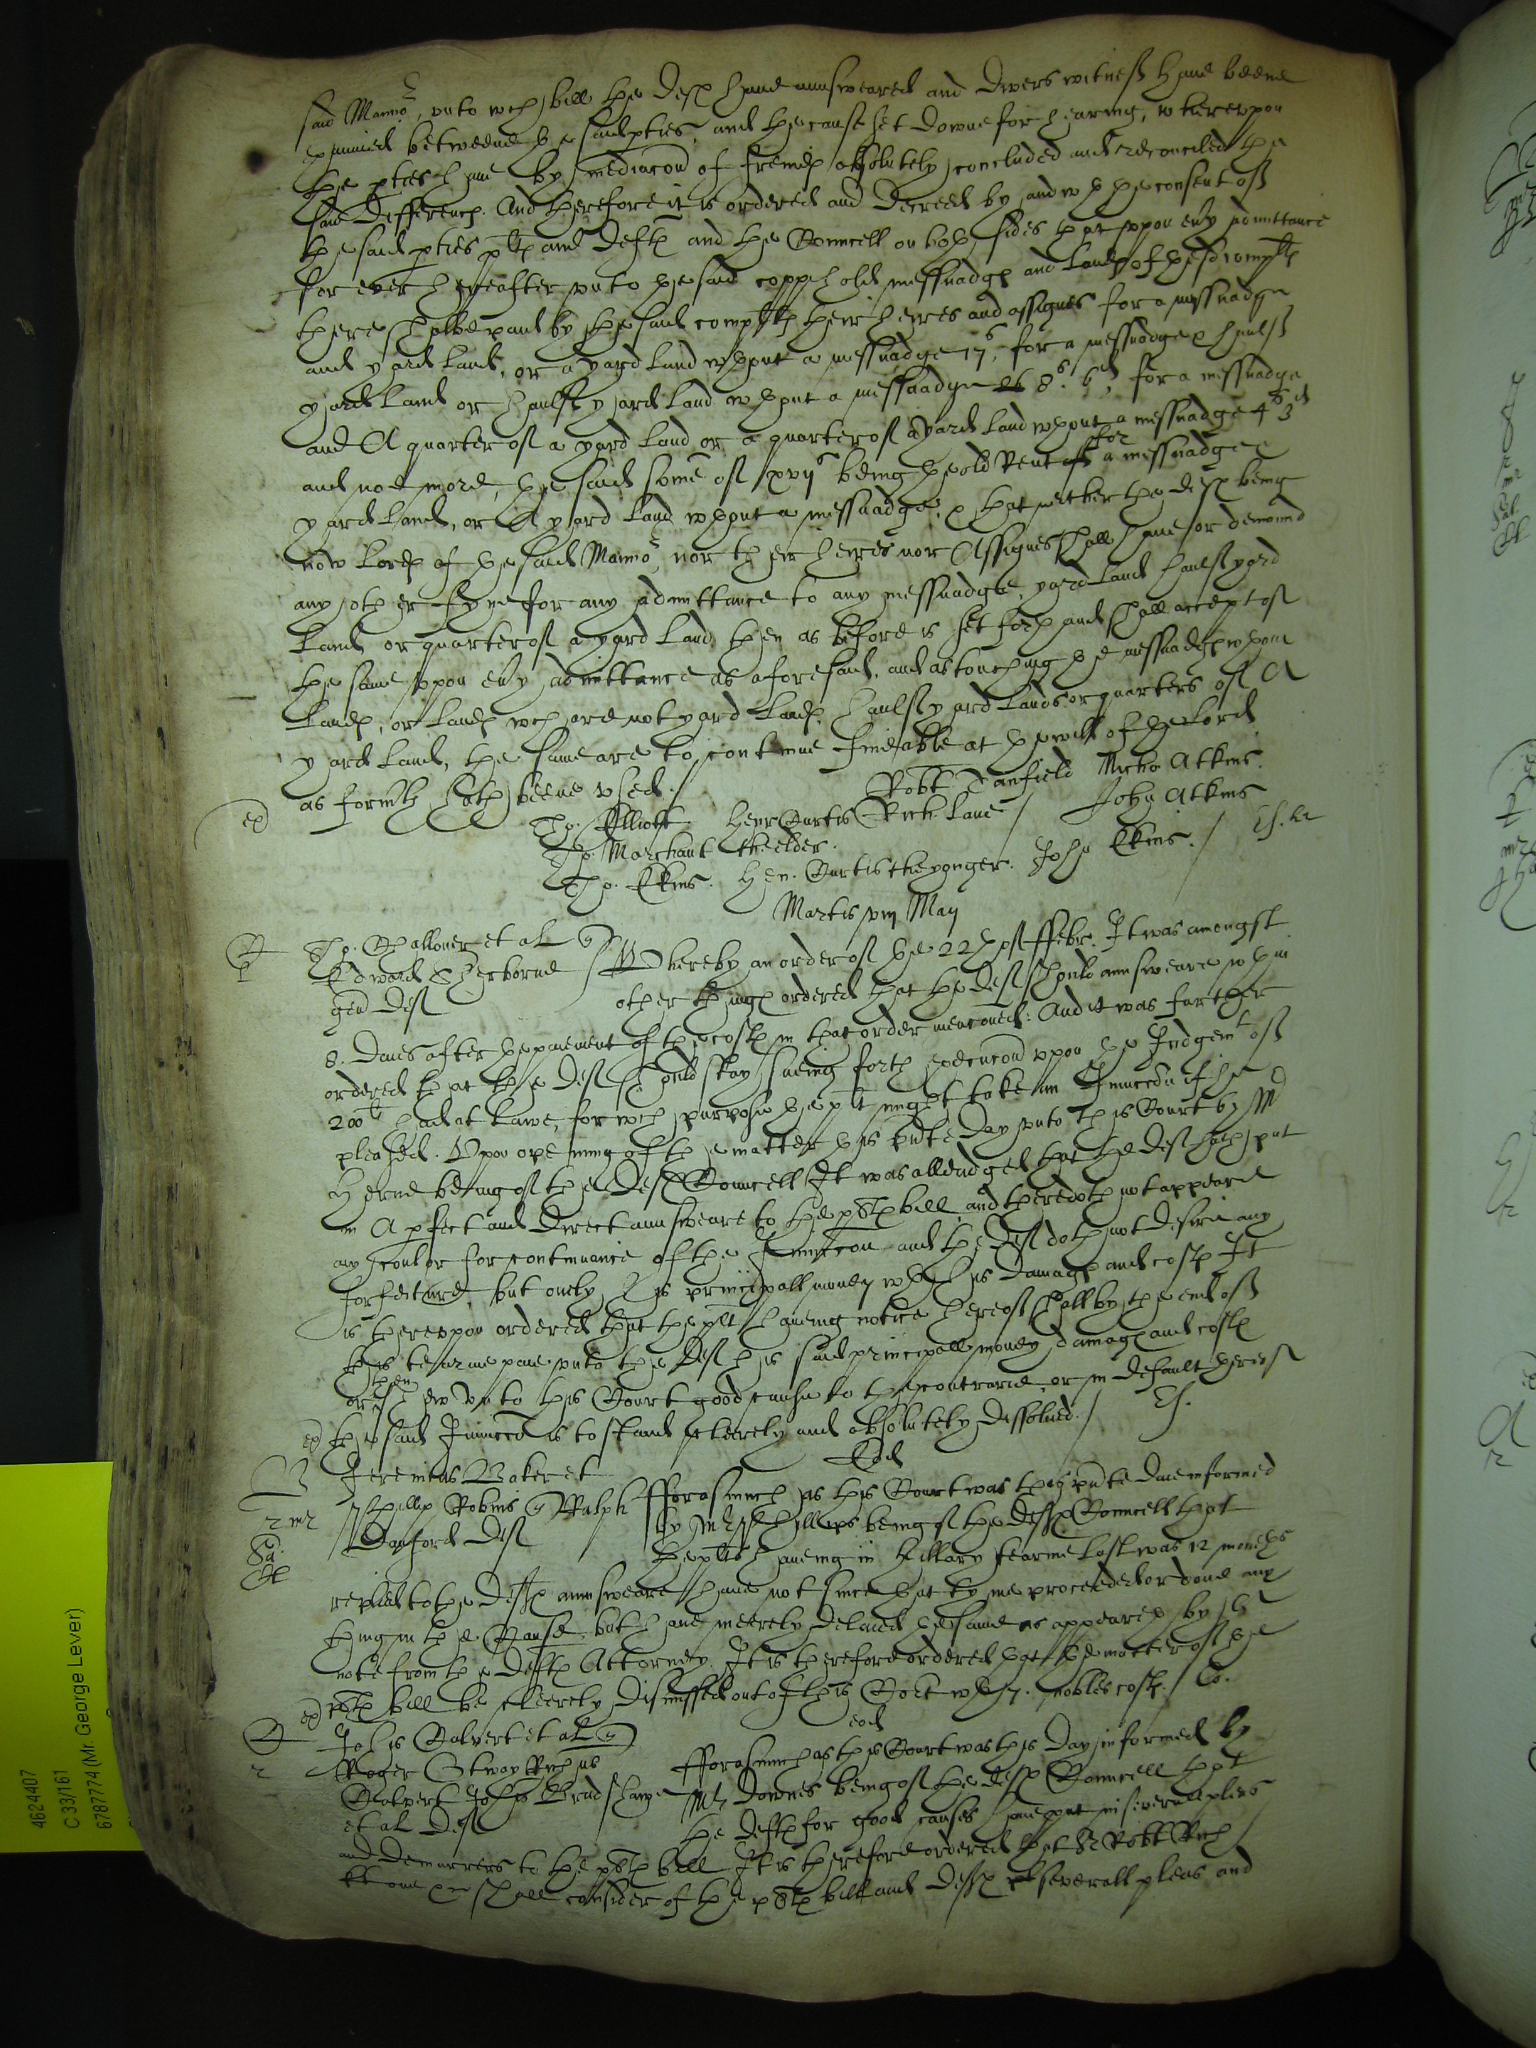 said Manno^r, unto w^ch bill the def^ts have aunsweared and divers witness have beene
examined betweene the said p^ties and the cause set downe for hearing, whereupon
the p^ties have by mediacon of frends absolutely concluded and reconciled the
said differences. And therefore it is ordered and decreed by and w^th the consent of
the said p^ties pl^ts and def^ts and the Councell on both sides that uppon ev^ry admittance
for ever hereafter unto the said coppihold messuadges and lands of the said compl^ts
there shalbe paid by the said compl^ts their heires and assignes for a messuadge
and yard land, or a yard land w^thout a messuadge 17^s, for a messuadge & haulf
yard land or haulf yard land w^thout a messuadge 8^s. 6^d, for a messuadge
and A quarter of a yard land or a quarter of a yard land w^thout a messuadge 4^s 3^d
and noe more, the said some of xvij^s being the old Rent for a messuadge
yard land, or A yard land w^thout a messuadge, & that neither the def^ts being
now Lords of the said Manno^r, nor their heires nor Assignes shall have or demaund
any other fyne for any admittance to any messuadge, yard land haulf yard
land or quarter of a yard land then as before is set forth and shall accept of
the same uppon ev^ry admittance as aforesaid, and as touching the messuadges w^thout
lands, or lands w^ch are not yard lands, haulf yard lands or quarters of A
yard land, the same are to continue fineable at the will of the Lord
as form^rly hath beene used.
Rob^t Banfield Micho Atkins.
Tho. Elliott. Henr Curtis Rich. Lane John Atkins
Tho. Marchant the elder.
Tho. Ekins. Hen. Curtis the yonger. John Ekins.
Martis viij Maij
Tho. Challoner et al q
Edward Sherborne gen def
Whereby an order of the 22^th of Febr. It was amongst
other things ordered that the def should aunsweare w^thin
8. daies after the payement of the costs in that order mencioned: And it was further
ordered that the def should stay sueing forth execucon uppon the Judgem^t of
200^li had at lawe, for w^ch purpose the pl^t might take an Iniuncc^on if he
pleased. Upon opening of the matter this p^nte day unto this Court by M^r
Herne being of the def^ts Councell It was alleadged that the def hath put
in A p^fect and direct aunsweare to the pl^ts bill, and there doth not appeare
any coulor for continuance of the Iniunccon and the def doth not desire any
forfeiture, but onely his principall money w^th his damages and costs It
is thereuppon ordered that the pl^t haveing notice hereof shall by the end of
this tearme paie unto the def his said principall money damages and costs
or then shew unto this Court good cause to the contrarie, or in default thereof
the said Iniuncc^on is to stand cleerely and absolutely dissolved.
Eod
Jeremias Baker et
Phillip Robins q Ralph
Danford def
fforasmuch as this Court was this p^nte daie informed
by M^r Phillipps being of the def^ts Councell that
the pl^ts haveing in Hillary tearme last was 12 moneths
replied to the def^ts aunsweare have not since that tyme proceeded or done any
thing in the Cause, but have meerely delaied the same as appeareth by the
note from the def^ts Attorney. It is therefore ordered that the matter of the
pl^ts bill be cleerely dismissed out of this Co^rt w^th 7. nobles costs. Co.
eod
Joh^is Calvert et al q
Roger Otway
Calvert Joh^is Bradshawe
et al def
fforasmuch as this Court was this day informed by
M^r Downes being of the def^ts Councell that
the def^ts for good causes have put in severall pleas
and demurrers to the pl^ts bill It is therefore ordered that S^r Rob^t Rich
kt one &c shall consider of the pl^ts bill and def^ts severall pleas and
4624407
C 33/161
6787774 (Mr. George Lever)